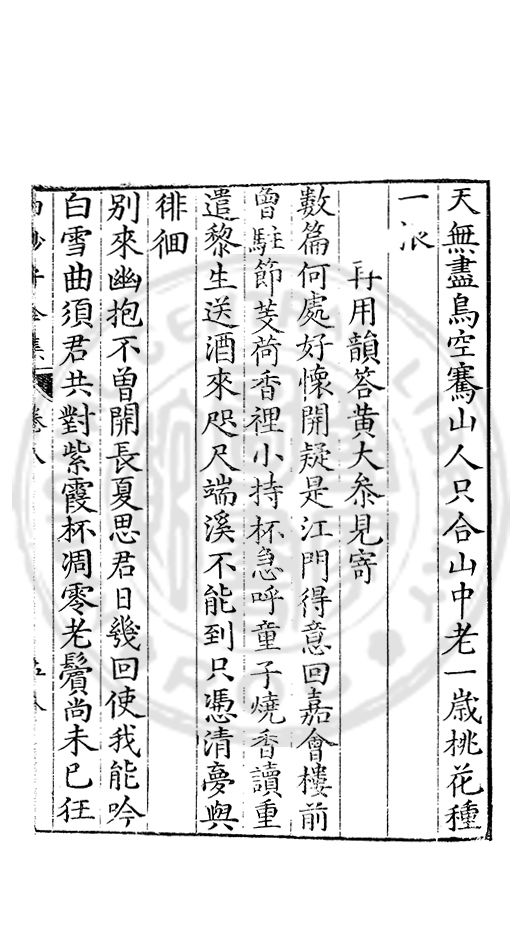 天無盡鳥空騫山人只合山中老一歲桃花種
一派
再用韻答黃大叅見寄
數篇何處好懷開疑是江門得意回嘉會樓前
曾駐節芰荷香裡小持杯急呼童子燒香讀重
遣黎生送酒來咫尺端溪不能到只憑清夢與
徘徊
别來幽抱不曽開長夏思君日幾回使我能吟
白雪曲須君共對紫霞杯凋零老鬢尚未已狂
卷八